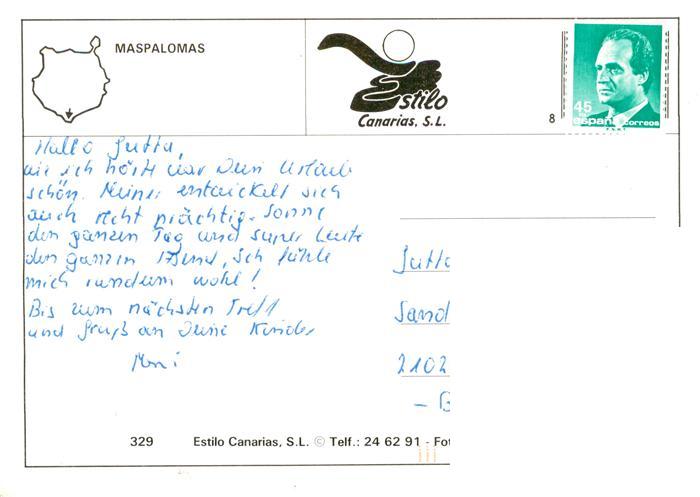 MASPALOMAS
Estilo
Canarias, S.L.
8
45
españa correos
Hallo Jutta,
wie ich hörte war Dein Urlaub
schön. Meiner entwickelt sich
auch recht prächtig. Sonne
den ganzen Tag und super Leute
den ganzen Abend, ich fühle
mich rundum wohl!
Bis zum nächsten Treff
und Gruß an Deine Kinder
Moni
Jutta
Sand
2102
329 Estilo Canarias, S.L. © Telf.: 24 62 91 - Fot